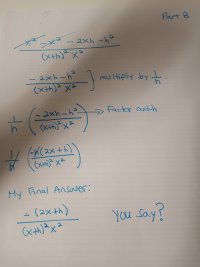 Part B
x² - x² - 2xh - h²
(x+h)² x²
- 2xh - h²
(x+h)² x²
] multiply by 1/h.
1/h ( - 2xh - h² / (x+h)² x² ) → Factor out h
1/h ( -h(2x + h) / (x+h)² x² )
My Final Answer:
- (2x+h)
(x+h)² x²
You say?